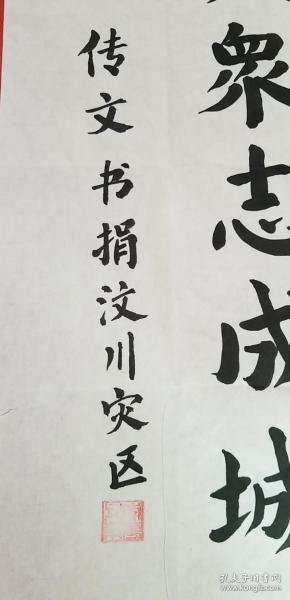 眾志成城
传文书捐汶川灾区
孔夫子旧书网
www.kongfz.com